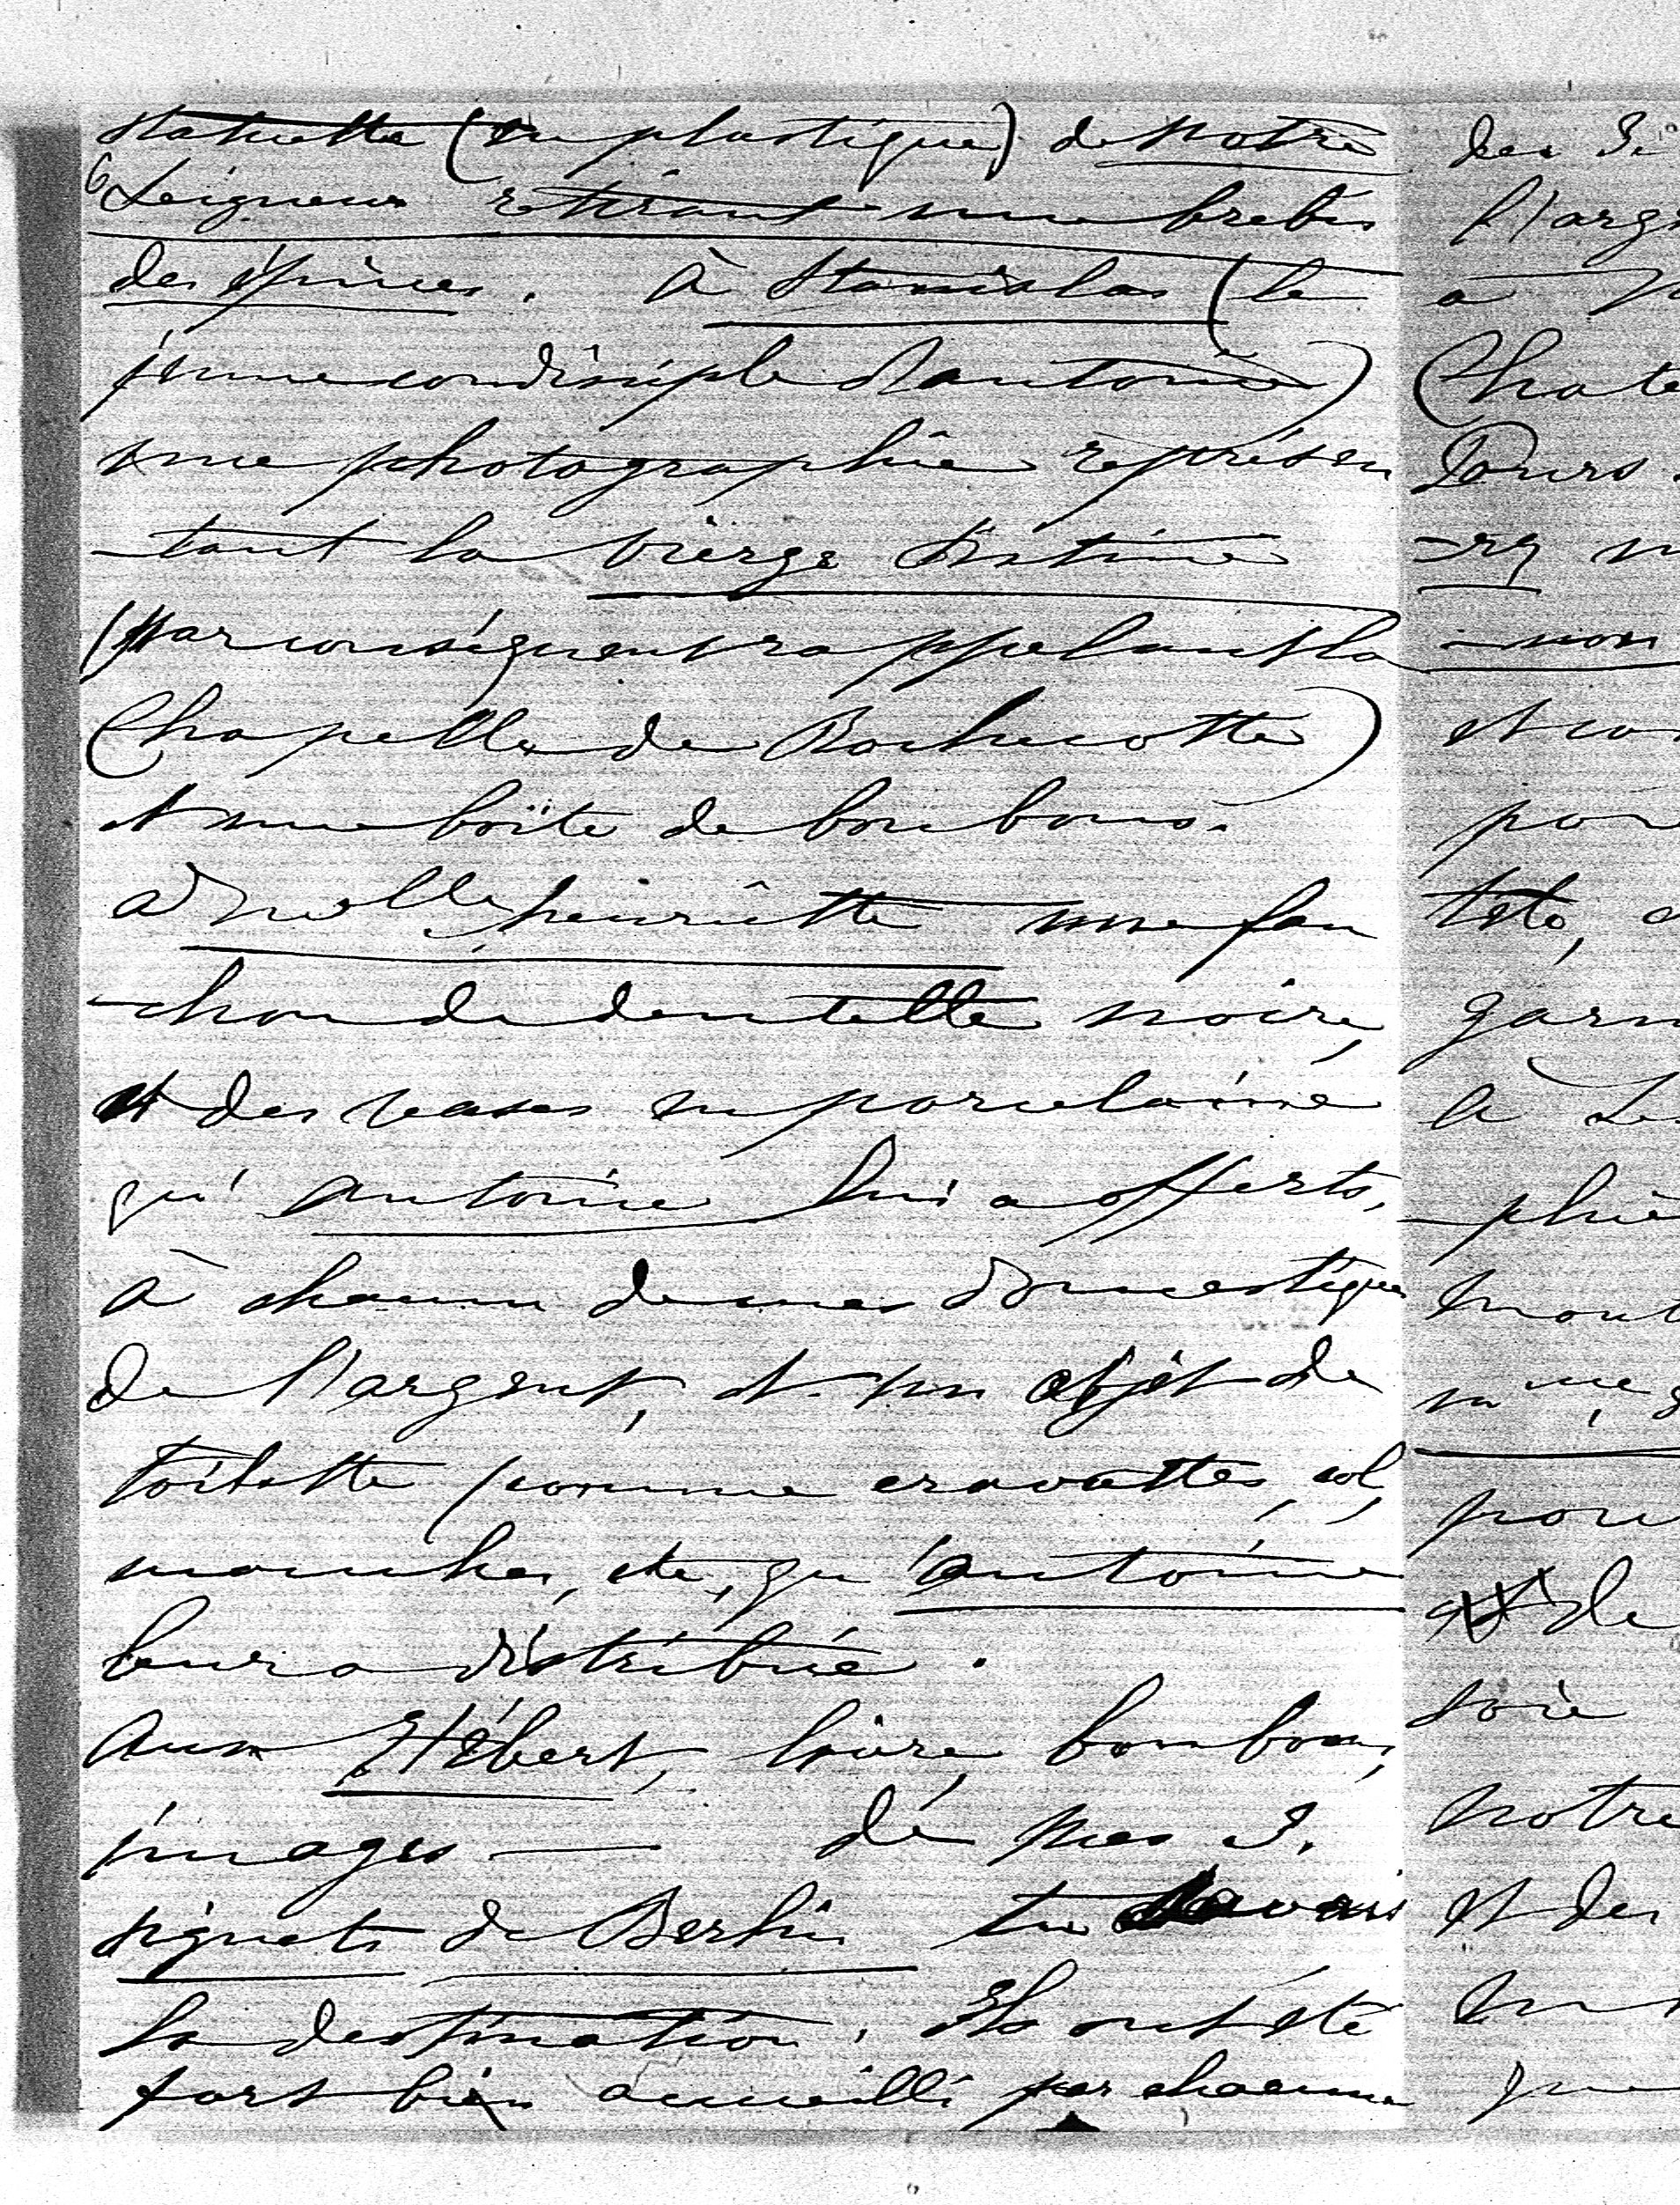 statuette (en plastique) de Notre
6
Seigneur retirant une brebis
des épines. à Stanislas (le
jeune condisciple d'antoine)
une photographie représen
-tant la Vierge Sixtine
(par conséquent rappelant la
Chapelle de Rochecotte)
et une boîte de bonbons.
à Melle henriette une fan
-chon de dentelle noire,
et des vases en porcelaine
qu'antoine lui a offerts.
à chacun de mes domestiques
de l'argent, et un objet de
toilette comme cravattes, col,
manches, etc, qu'antoine
leur a distribué.
aux Hébert, livre, bonbons,
images — de mes 3.
signets de Berlin tu savais
la destination. Ils ont été
fort bien accueilli par chacune
des
l'arg
à
Chate

-ry
-mon
et con
pour
tête,
garn
à
-phie
mont
me
pour
de
soie
notre
et des